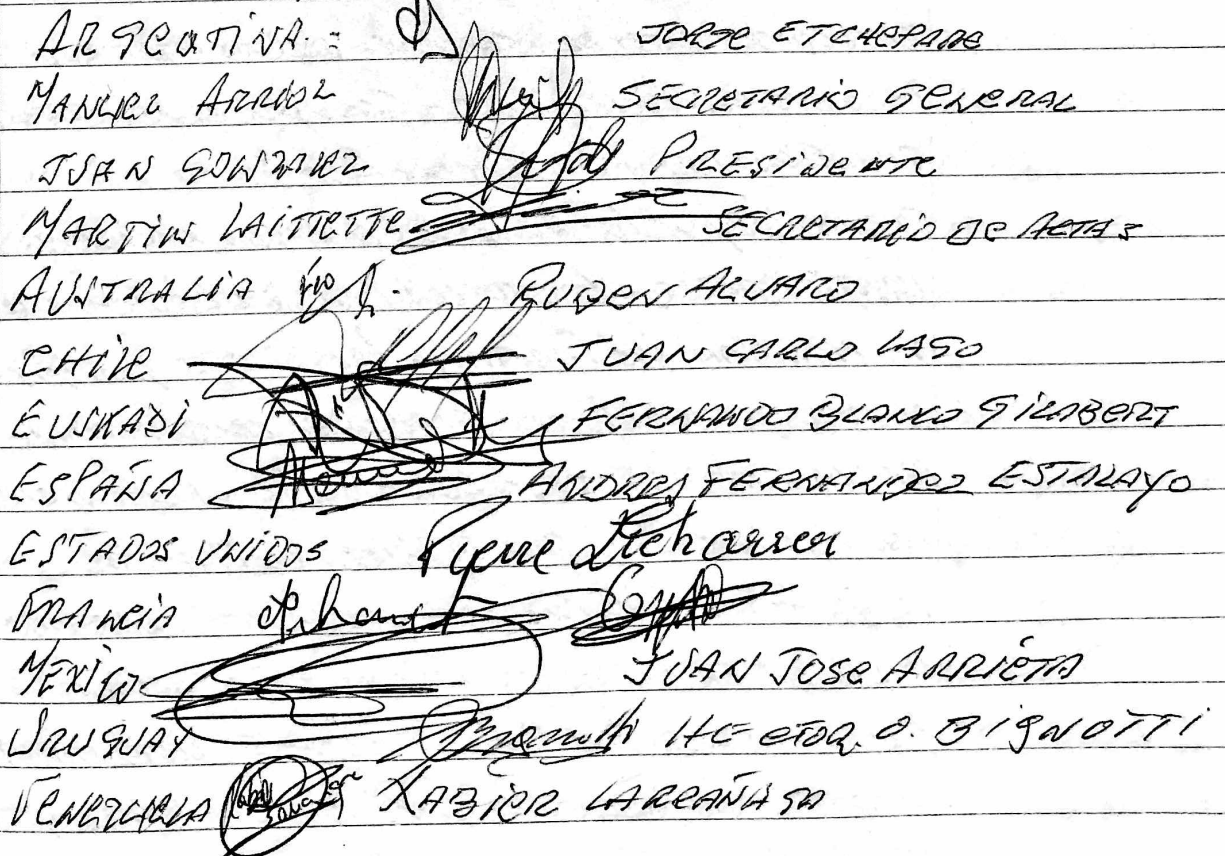 ARGENTINA: JORGE ETCHEPARE
MANUEL ARRIOL SECRETARIO GENERAL
JUAN GONZALEZ PRESIDENTE
MARTIN LAITTETTE SECRETARIO DE ACTAS
AUSTRALIA RUBEN ALVARO
CHILE JUAN CARLO LAGO
EUSKADI FERNANDO BLANCO GILABERT
ESPAÑA ANDRES FERNANDEZ ESTALAYO
ESTADOS UNIDOS Pierre Etcharren
FRANCIA
MEXICO JUAN JOSE ARRIETA
URUGUAY HECTOR O. BIGNOTTI
VENEZUELA XABIER LARRAÑAGA